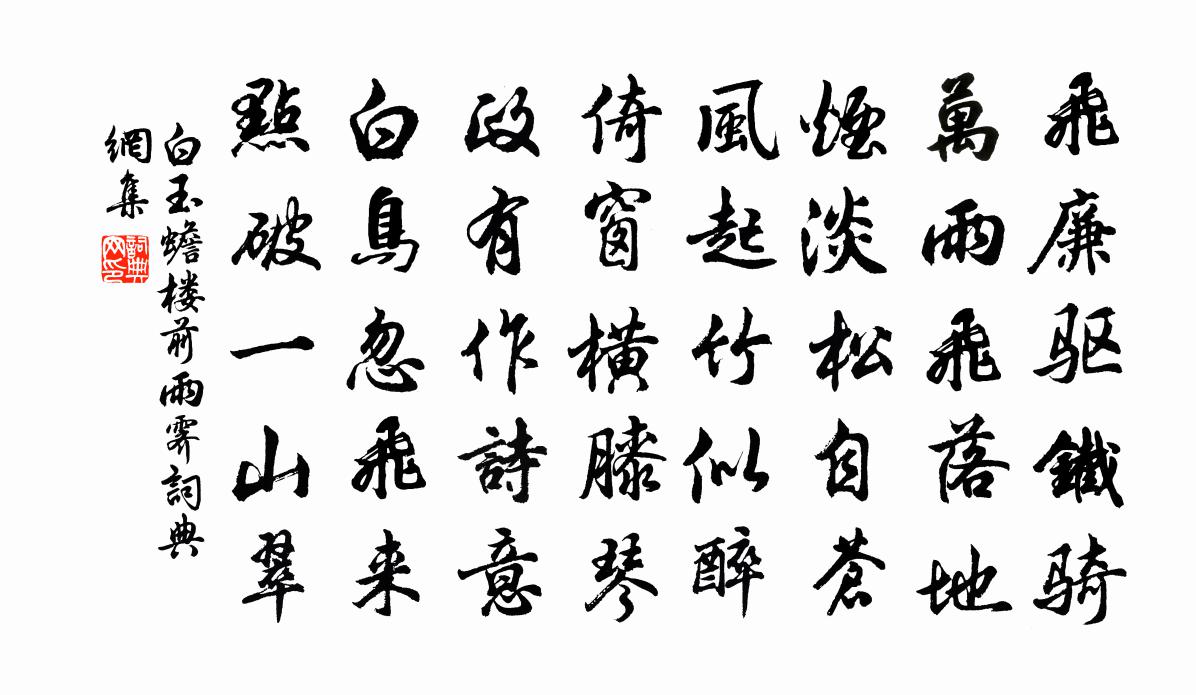 飛廉驱鐵骑
萬雨飛落地
煙淡松自蒼
風起竹似醉
倚窗橫膝琴
政有作詩意
白鳥忽飛来
點破一山翠
白玉蟾楼前雨霁詞典
網集
詞典
网印